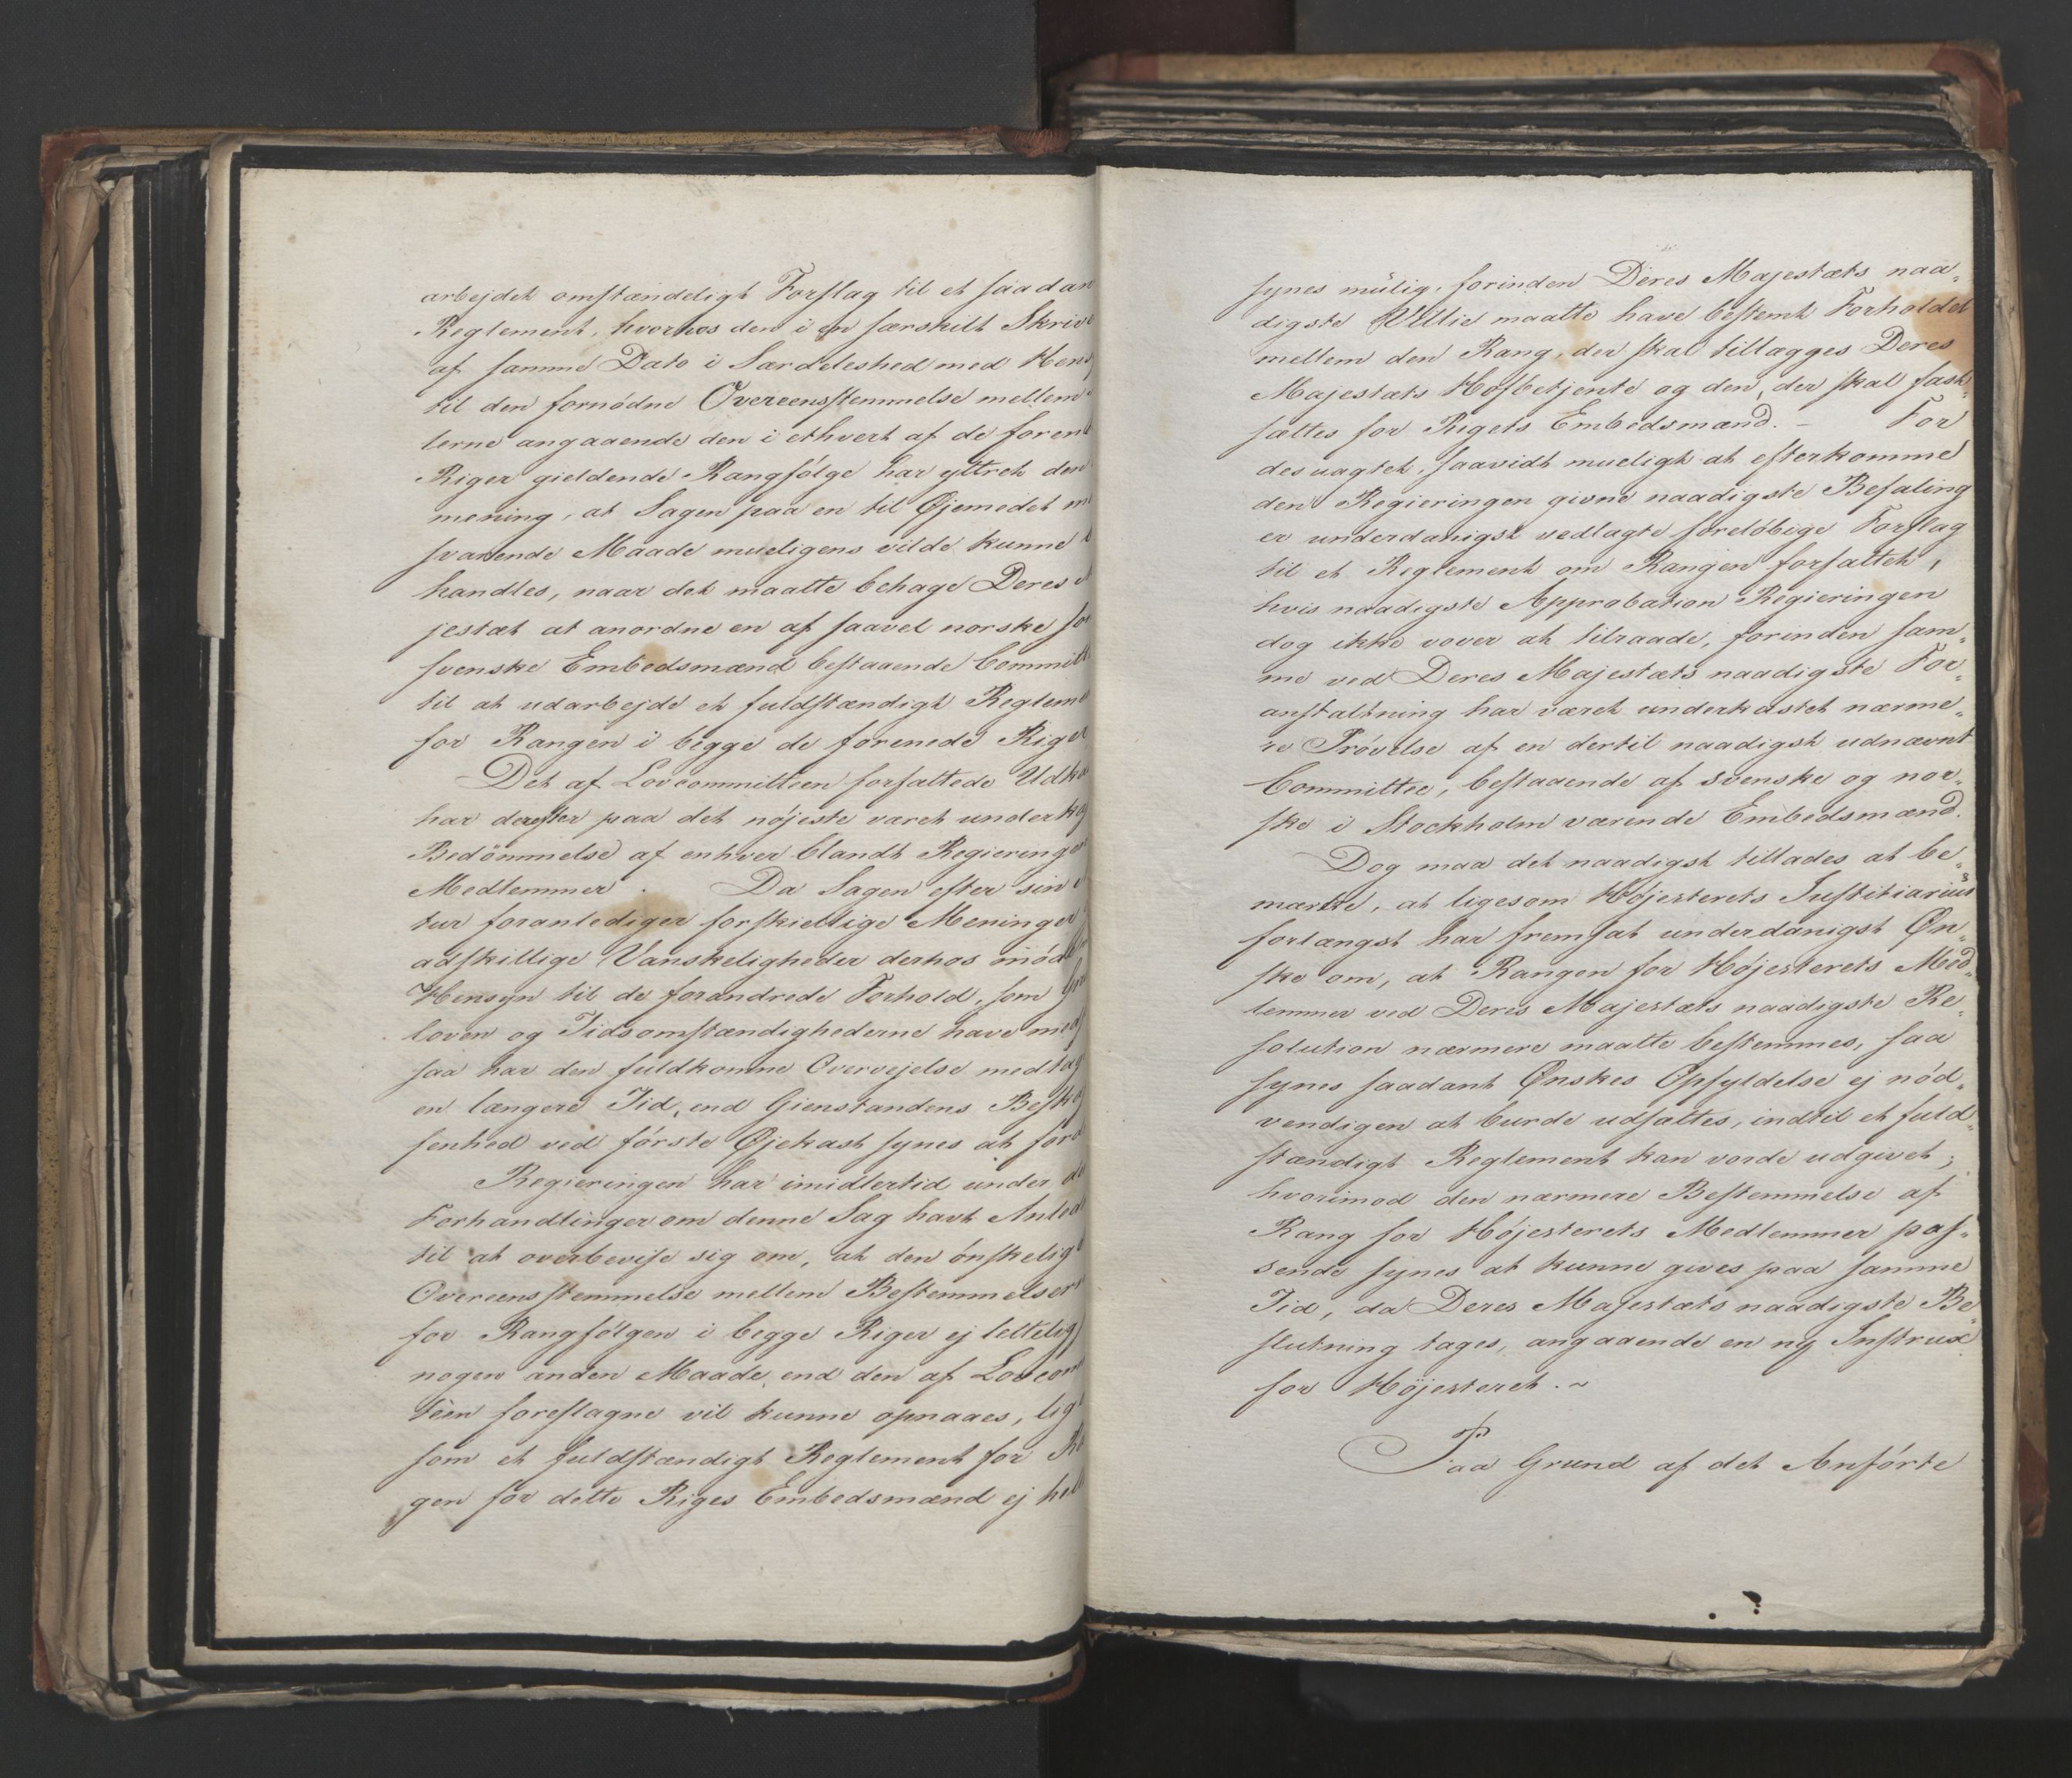 arbejdet omstændeligt Forslag til et saadan
Reglement, hvorhos den i en særskilt Skriv
af samme Dato i Særdeleshed med Hens
til den fornødne Overeensstemmelse mellem
lerne angaaende den i ethvert af de foren
Riger gieldende Rangfølge har yttret den
mening, at Sagen paa en til Øjemedet
svarende Maade mueligens vilde kunne
handles, naar det maatte behage Deres
jestæt at anordne en af saavel norske so
svenske Embedsmænd bestaaende Committ
til at udarbejde et fuldstændigt Regleme
for Rangen i begge de forenede Riger
Det af Lovcommitteen forfattede Udka
har derefter paa det nøjeste været underka
Bedömmelse af enhver blandt Regieringen
Medlemmer. Da Sagen efter sin
tur foranlediger forskiellige Meninger
adskillige Vanskeligheder derhos möd
Hensyn til de forandrede Forhold, som Gru
loven og Tidsomstændighederne have medf
saa har den fuldkomne Overvejelse medtag
en længere Tid, end Gienstandens Beska
fenhed ved første Øjekast synes at ford
Regieringen har imidlertid under de
Forhandlinger om denne Sag havt Anled
til at overbevise sig om, at den ønskelig
Overeensstemmelse mellem Bestemmelser
for Rangfølgen i begge Riger ej lettelig
nogen anden Maade, end den af Lovcom
teen foreslagne vil kunne opnaaes, lig
som et fuldstændigt Reglement for Ra
gen for dette Riges Embedsmænd ej hell
synes mülig, forinden Deres Majestæts naa„
digste Villie maatte have bestemt Forholdet
mellem den Rang, der skal tillægges Deres
Majestæts Hofbetjente og den, der skal fast„
sættes for Rigets Embedsmænd. – For
desuagtet, saavidt mueligt at efterkomme
den Regieringen givne naadigste Befaling
er underdanigst vedlagte foreløbige Forslag
til et Reglement om Rangen forfattet,
hvis naadigste Approbation Regieringen
dog ikke vover at tilraade, forinden sam„
me ved Deres Majestæts naadigste For„
anstaltning har været underkastet nærme„
re Prøvelse af en dertil naadigst udnævnt
Committee, bestaaende af svenske og nor„
ske i Stockholm værende Embedsmænd.
Dog maa det naadigst tillades at be„
mærke, at ligesom Højesterets Justitiarius
forlængst har fremsat underdanigst Øn„
ske om, at Rangen for Højesterets Med„
lemmer ved Deres Majestæts naadigste Re„
solution nærmere maatte bestemmes, saa
synes saadant Ønskes Opfyldelse ej nød„
vendigen at burde udsættes, indtil et fuld„
stændigt Reglement kan vorde udgivet;
hvorimod den nærmere Bestemmelse af
Rang for Højesterets Medlemmer pas„
sende synes at kunne gives paa samme
Tid, da Deres Majestæts naadigste Be„
slutning tages, angaaende en ny Instrux
for Højesteret. ~
Paa Grund af det Anførte